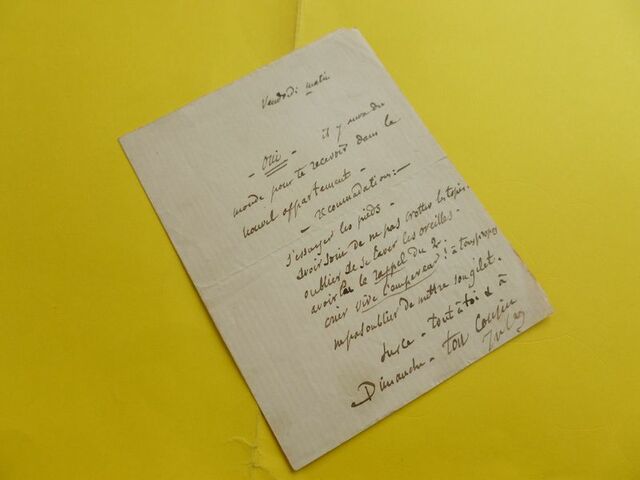 Vendredi matin
- Oui - il y aura du
monde pour te recevoir dans le
nouvel appartement -
- recommadations: -
s'essuyer les pieds -
avoir soin de ne pas crotter les tapis.
oublier de se laver les oreilles.
avoir lu le rappel du 2.
crier vive l'empereur! à tous propos
ne pas oublier de mettre son gilet.
Sur ce - tout à toi & à
Dimanche - ton cousin
Jules